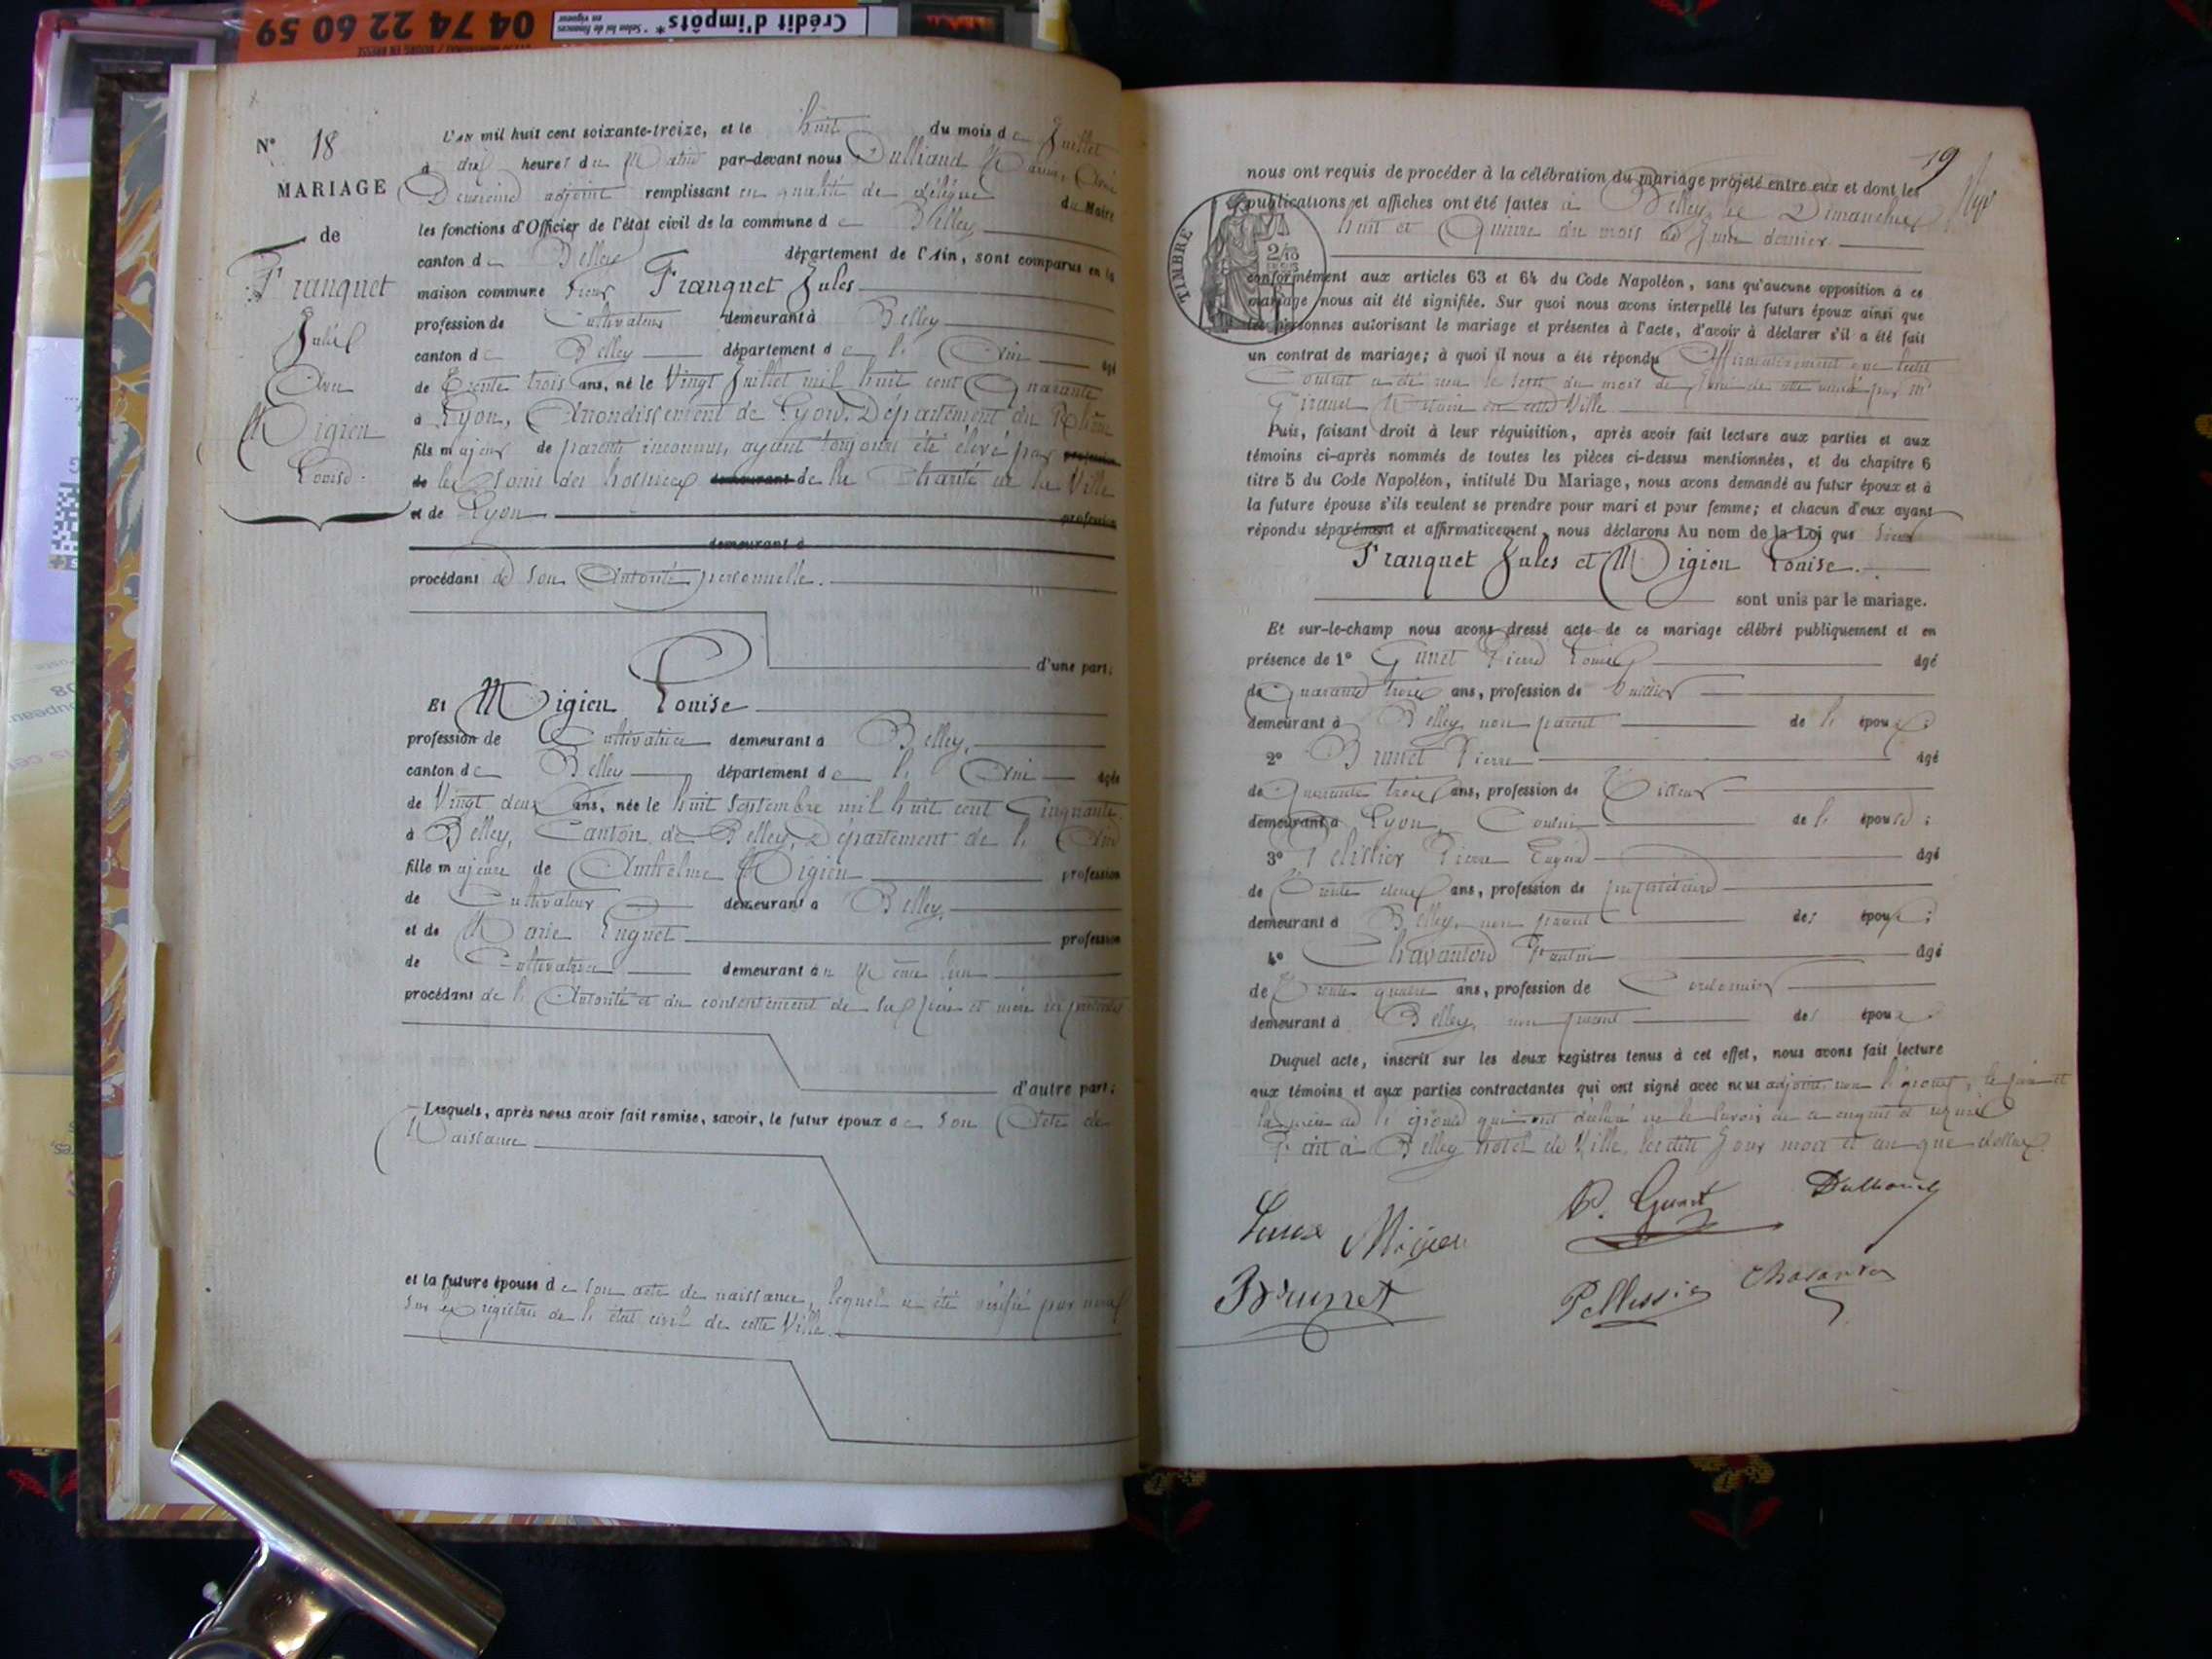 Crédit d'impôts*
* Selon loi de finances
en vigueur
04 74 22 60 59
N° 18
MARIAGE
de
Franquet
Jules
Avec
Migieu
Louise.
L'AN mil huit cent soixante-treize, et le huit du mois de Juillet
à dix heures du Matin par-devant nous Dulliand
Deuxième adjoint remplissant en qualité de délégué du Maire
les fonctions d'Officier de l'état civil de la commune de Belley
canton de Belley département de l'Ain, sont comparus en la
maison commune Sieur Franquet Jules
profession de Cultivateur demeurant à Belley
canton de Belley département de l'Ain âgé
de Trente trois ans, né le Vingt Juillet mil huit cent Quarante
à Lyon, Arrondissement de Lyon, Département du Rhône
fils majeur de parents inconnus, ayant toujours été élevé par profession
de les soins des hospices demeurant de la Charité de la Ville
et de Lyon. profession
demeurant à
procédant de son Autorité personnelle.
d'une part;
Et Migieu Louise
profession de Cultivatrice demeurant à Belley,
canton de Belley département de l'Ain âgée
de Vingt deux ans, née le huit Septembre mil huit cent Cinquante
à Belley, Canton de Belley, Département de l'Ain
fille majeure de Anthelme Migieu profession
de Cultivateur demeurant à Belley,
et de Marie Puguet profession
de Cultivatrice demeurant au Même lieu
procédant de l'Autorité et du consentement de ses père et mère ici présents
d'autre part;
Lesquels, après nous avoir fait remise, savoir, le futur époux de son Acte de
Naissance
et la future épouse de son acte de naissance, lequel a été vérifié par nous
sur les registres de l'état civil de cette Ville.
19
nous ont requis de procéder à la célébration du mariage projeté entre eux et dont les
publications et affiches ont été faites à Belley les Dimanches
huit et Quinze du mois de Juin dernier.
TIMBRE
conformément aux articles 63 et 64 du Code Napoléon, sans qu'aucune opposition à ce
mariage nous ait été signifiée. Sur quoi nous avons interpellé les futurs époux ainsi que
les personnes autorisant le mariage et présentes à l'acte, d'avoir à déclarer s'il a été fait
un contrat de mariage; à quoi il nous a été répondu Affirmativement que ledit
Contrat a été reçu le sept du mois de par Me
Giraud Notaire en cette Ville
Puis, faisant droit à leur réquisition, après avoir fait lecture aux parties et aux
témoins ci-après nommés de toutes les pièces ci-dessus mentionnées, et du chapitre 6
titre 5 du Code Napoléon, intitulé Du Mariage, nous avons demandé au futur époux et à
la future épouse s'ils veulent se prendre pour mari et pour femme; et chacun d'eux ayant
répondu séparément et affirmativement, nous déclarons Au nom de la Loi que Sieur
Franquet Jules et Migieu Louise.
sont unis par le mariage.
Et sur-le-champ nous avons dressé acte de ce mariage célébré publiquement et en
présence de 1° Gunet Pierre Louis âgé
de Quarante trois ans, profession de huissier
demeurant à Belley, non parent de l'époux;
2° Brunet Pierre âgé
de Quarante trois ans, profession de Tisseur
demeurant à Lyon, Cousin de l'épouse;
3° Pelissier Pierre Eugène âgé
de Trente deux ans, profession de propriétaire
demeurant à Belley, non parent des époux;
4° Chavanton âgé
de Trente quatre ans, profession de Cordonnier
demeurant à Belley, non parent des époux
Duquel acte, inscrit sur les deux registres tenus à cet effet, nous avons fait lecture
aux témoins et aux parties contractantes qui ont signé avec nous adjoint, non l'époux, le père et
la mère de l'épouse qui ont déclaré ne le savoir de ce enquis et requis
Fait à Belley hotel de Ville, lesdits Jour mois et an que dessus
Louise Migieu
P. Gunet
Dulliand
Brunet
Pellissier
Chavanton